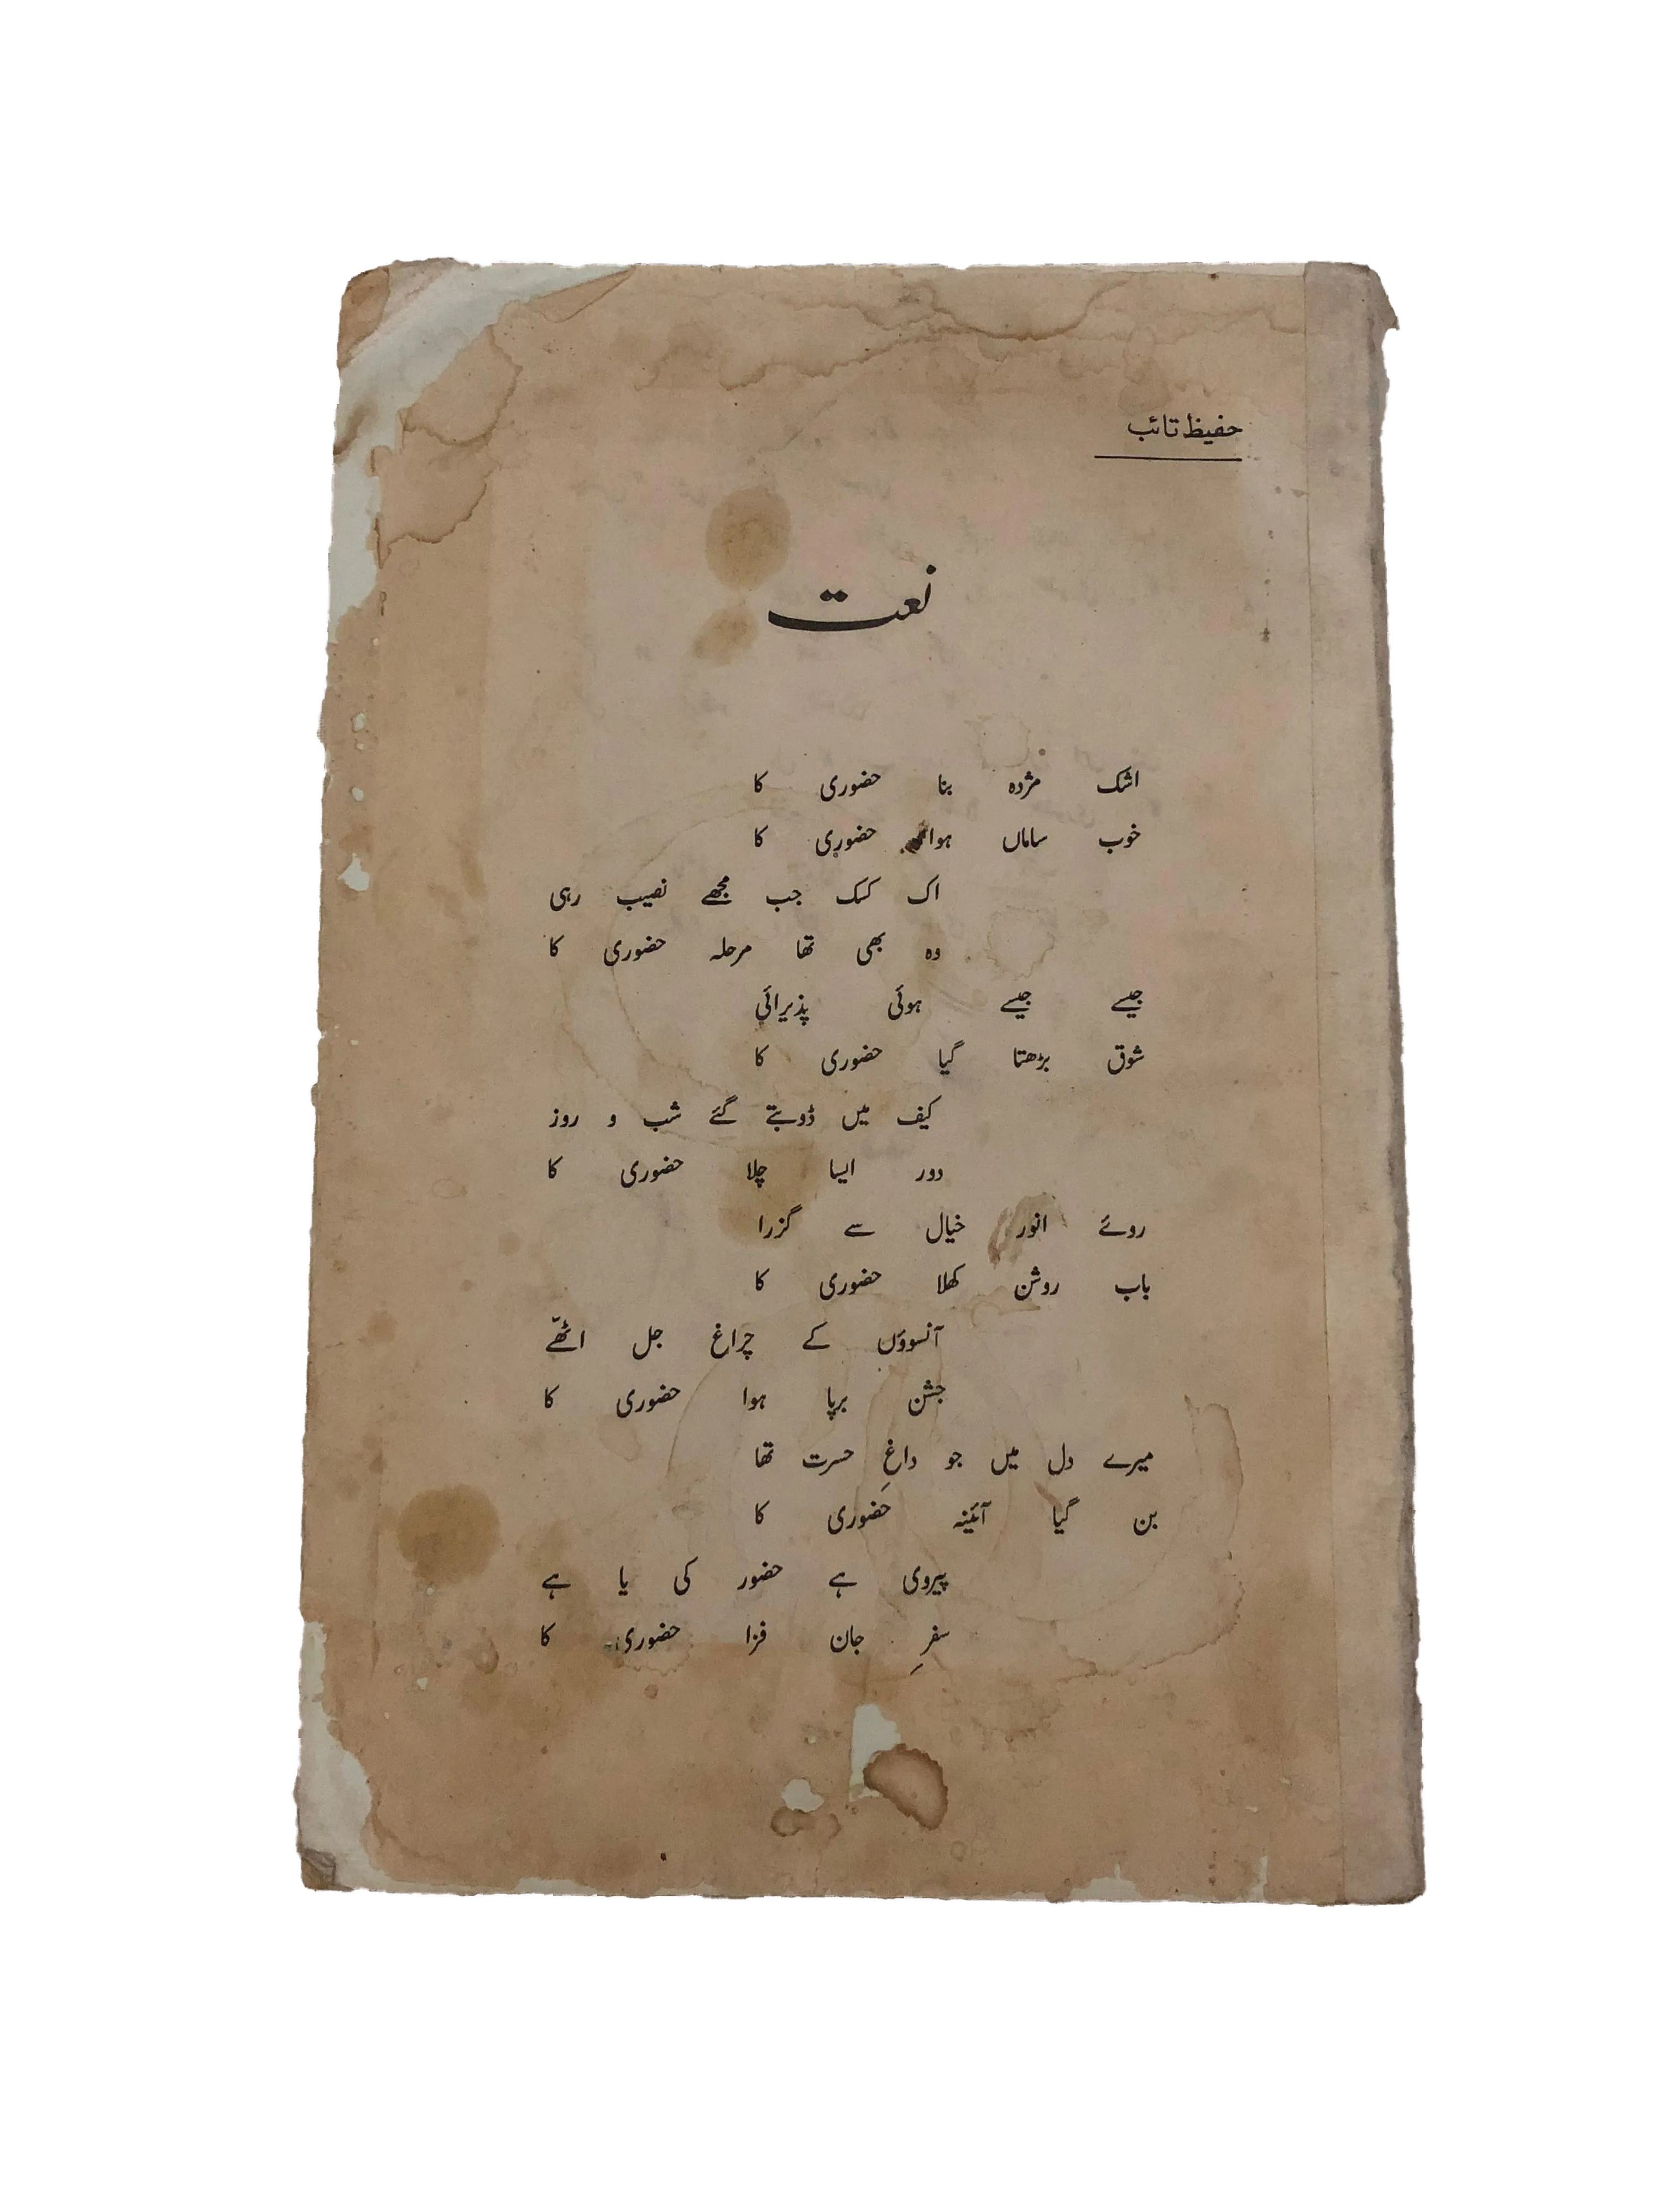 حفیظ تائب
نعت
اشک مژدہ بنا حضوری کا
خوب ساماں ہوا حضوری کا
اک کسک جب مجھے نصیب رہی
وہ بھی تھا مرحلہ حضوری کا
جیسے جیسے ہوئی پذیرائی
شوق بڑھتا گیا حضوری کا
کیف میں ڈوبتے گئے شب و روز
دور ایسا چلا حضوری کا
روئے انور خیال سے گزرا
باب روشن کھلا حضوری کا
آنسوؤں کے چراغ جل اٹھّے
جشن برپا ہوا حضوری کا
میرے دل میں جو داغِ حسرت تھا
بن گیا آئینہ حضوری کا
پیروی ہے حضور کی یا ہے
سفرِ جان فزا حضوری کا